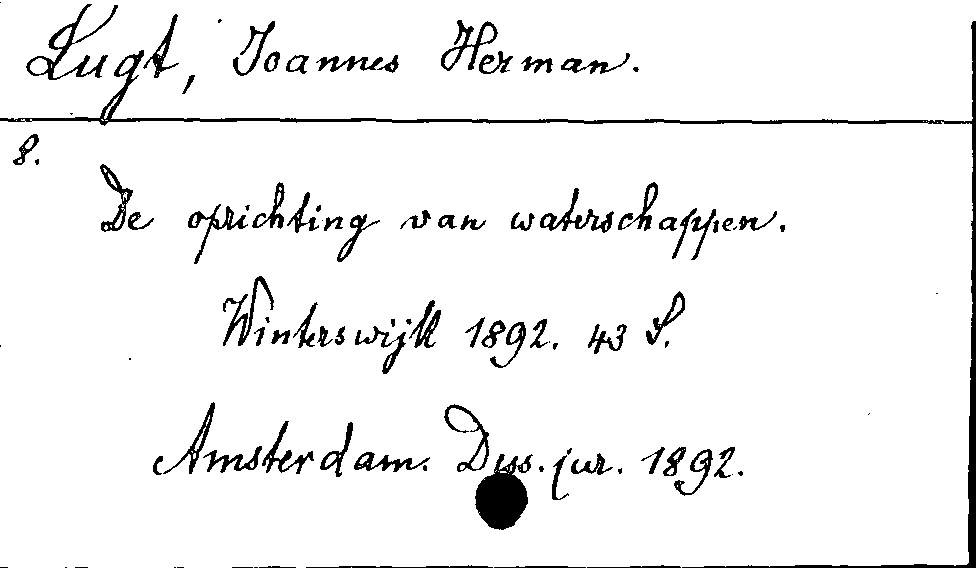 Lugt, Joannes Herman.
8.
De oprichting van waterschappen.
Winterswijk 1892. 43 S.
Amsterdam. Diss. jur. 1892.